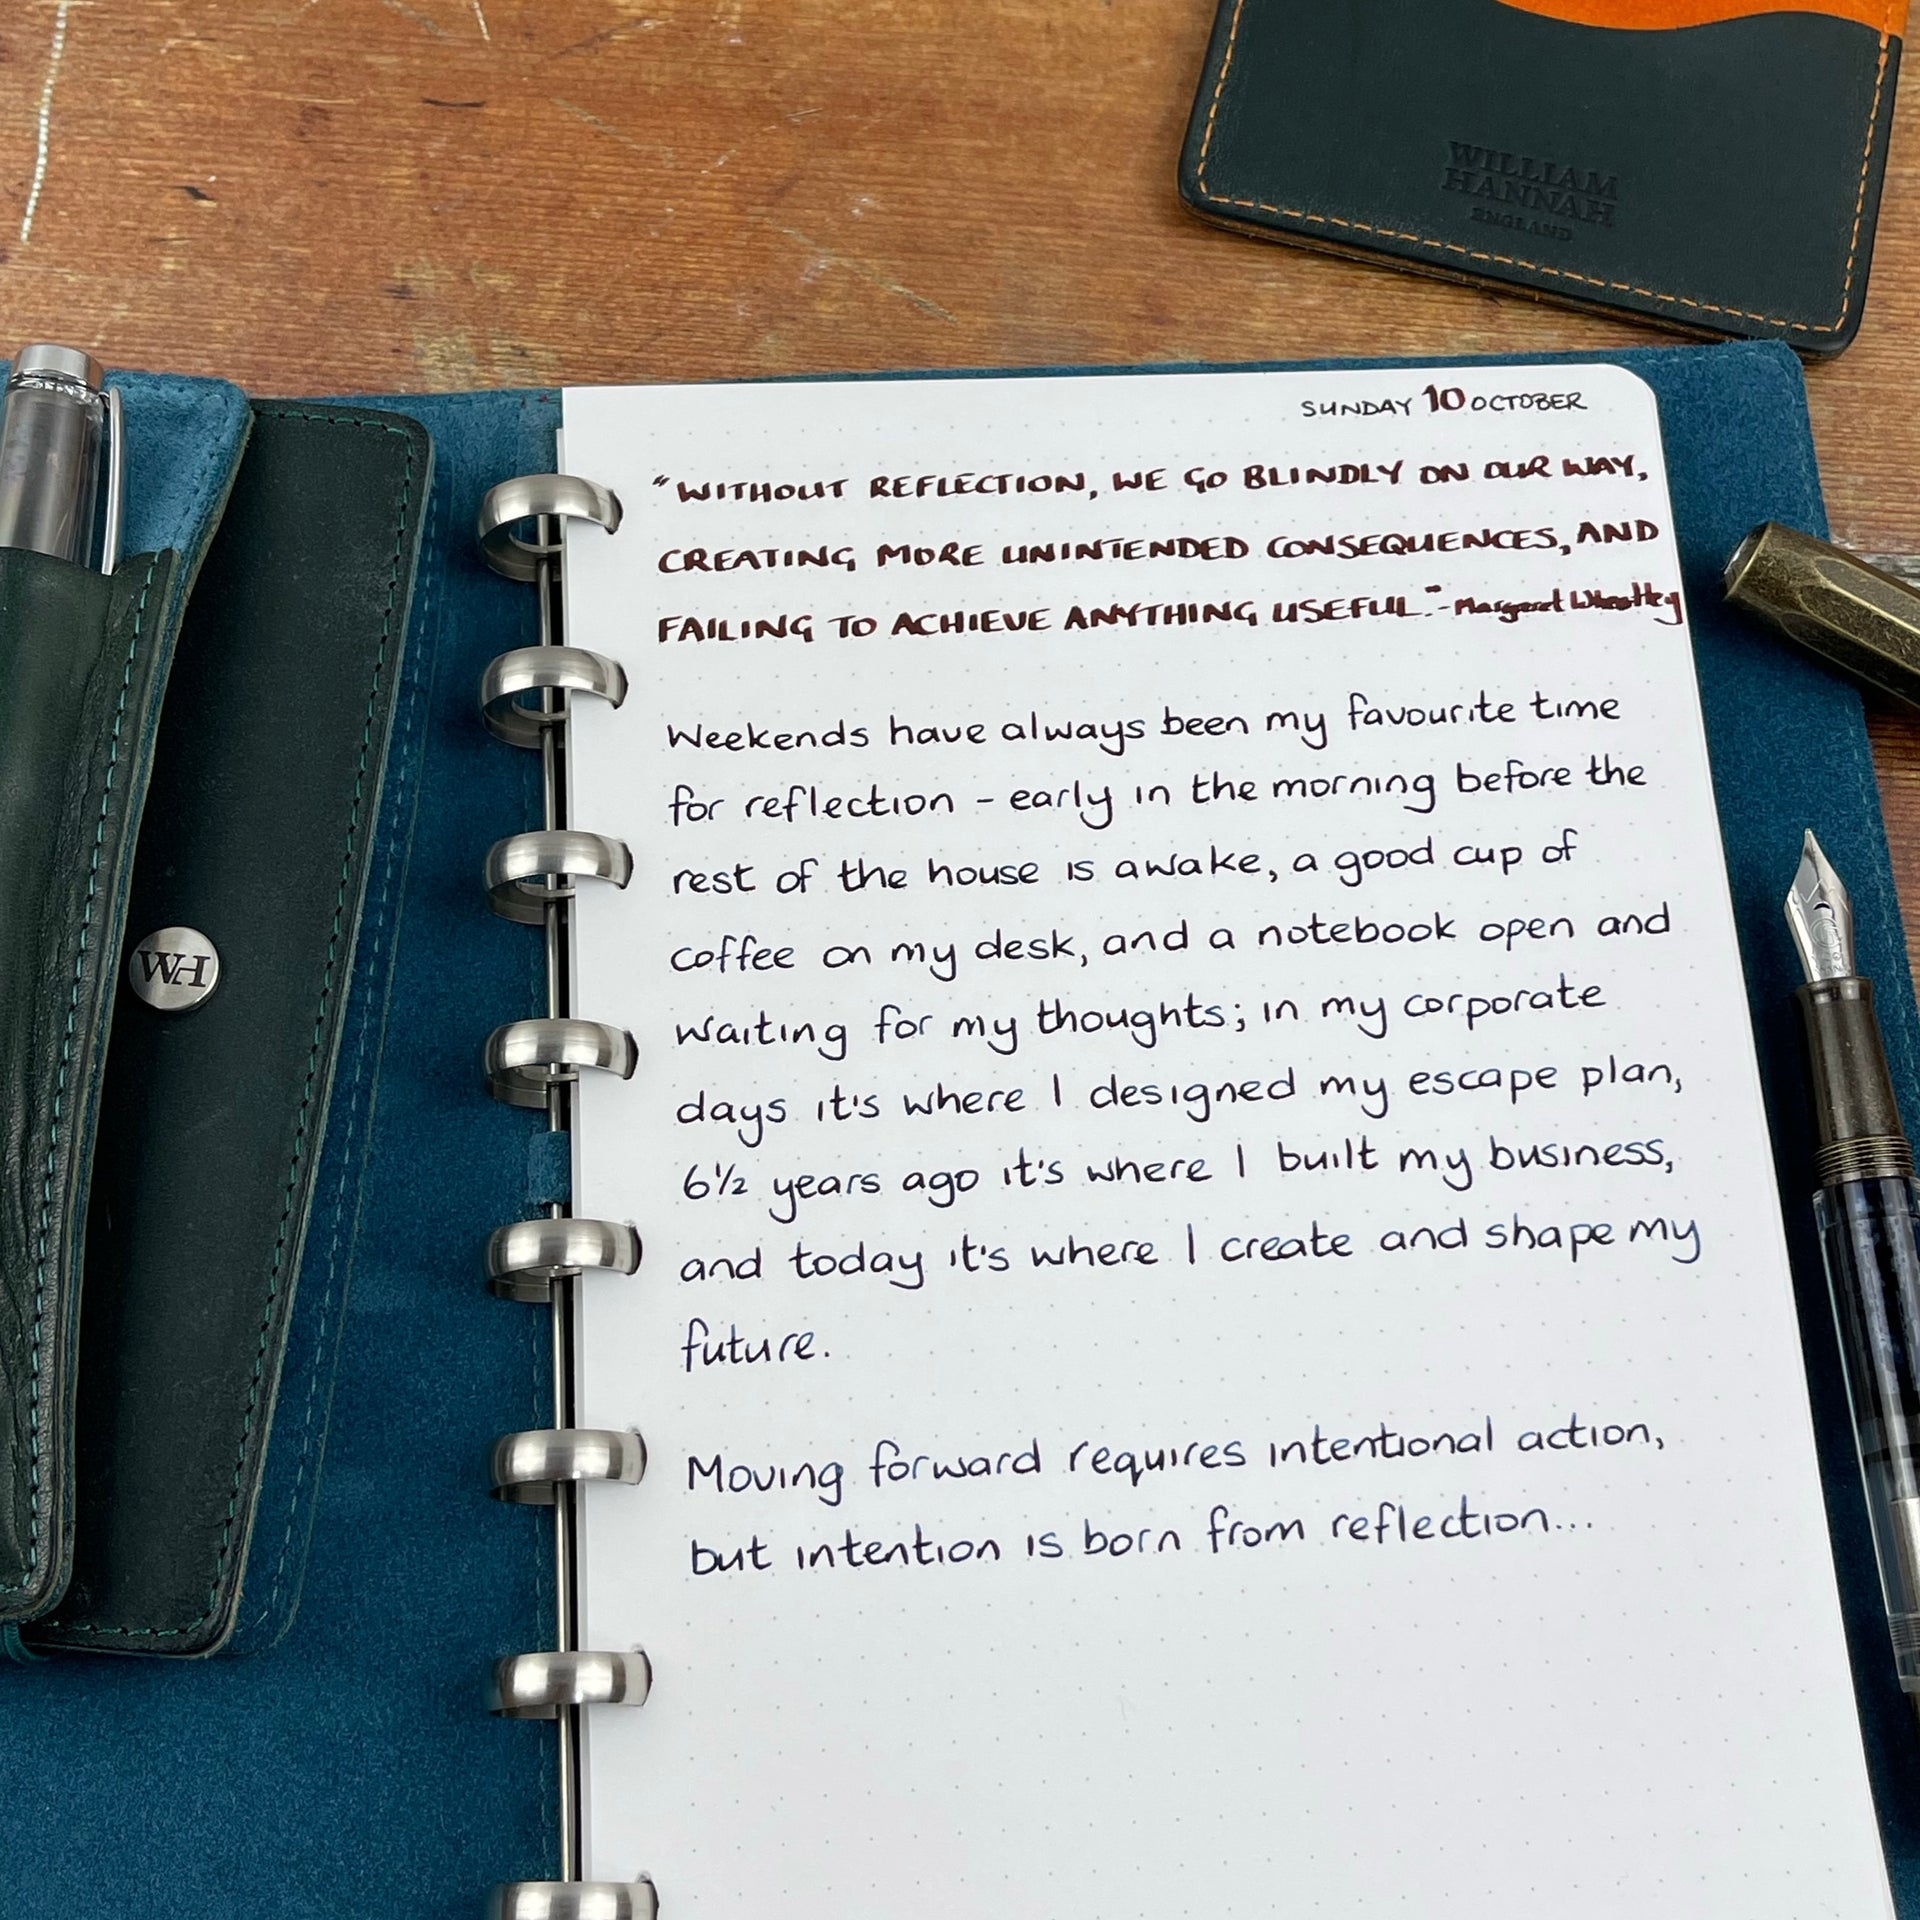 WILLIAM
HANNAH
ENGLAND
SUNDAY 10 OCTOBER
"WITHOUT REFLECTION, WE GO BLINDLY ON OUR WAY,
CREATING MORE UNINTENDED CONSEQUENCES, AND
FAILING TO ACHIEVE ANYTHING USEFUL." - Margaret Wheatley
Weekends have always been my favourite time
for reflection - early in the morning before the
rest of the house is awake, a good cup of
coffee on my desk, and a notebook open and
waiting for my thoughts; in my corporate
days it's where I designed my escape plan,
6½ years ago it's where I built my business,
and today it's where I create and shape my
future.
Moving forward requires intentional action,
but intention is born from reflection...
WH